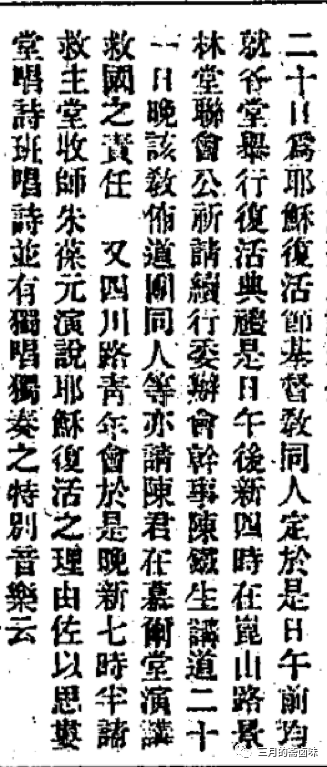 二十日為耶穌復活節基督教同人定於是日午前均
就各堂舉行復活典禮是日午後新四時在崑山路景
林堂聯會公祈請續行委辦會幹事陳鐵生講道二十
一日晚該教佈道團同人等亦請陳君在慕爾堂演講
救國之責任　又四川路青年會於是晚新七時半請
救主堂收師朱葆元演說耶穌復活之理由佐以思
堂唱詩班唱詩並有獨唱獨奏之特別音樂云
三月的斋卤味